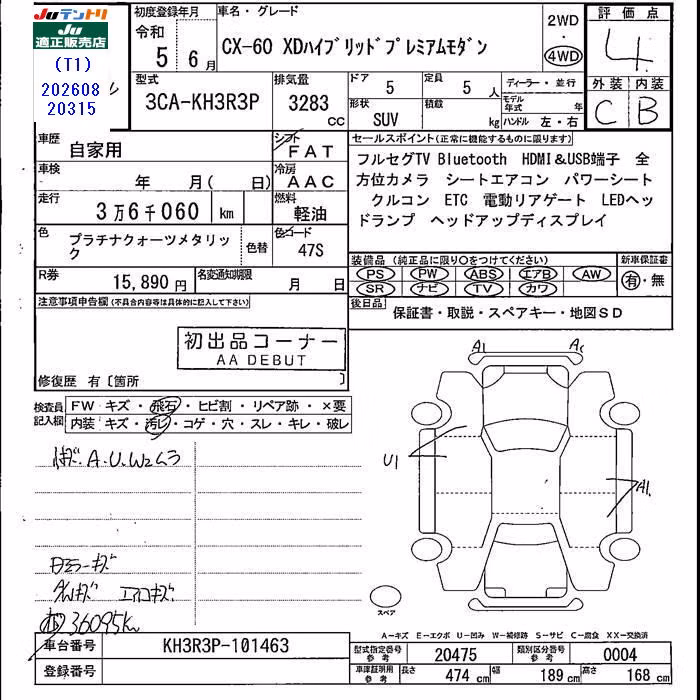 JUテントリ
JU
適正販売店
(T1)
202608
20315
初度登録年月
令和
5年 6月
車名・グレード
CX-60 XDハイブリッドプレミアムモダン
2WD
・
4WD
評価点
4
外装 内装
C B
型式
3CA-KH3R3P
排気量
3283 cc
ドア
5
定員
5人
形状
SUV
積載
kg
ディーラー・並行
モデル年式 年
ハンドル 左・右
車歴
自家用
シフト
FAT
車検
年 月( 日)
冷房
AAC
走行
3万6千060 km
燃料
軽油
色
プラチナクォーツメタリック
色替
色コード
47S
R券
15,890円
名変通知期限
月 日
セールスポイント(正常に機能するものに限ります)
フルセグTV Bluetooth HDMI&USB端子 全
方位カメラ シートエアコン パワーシート
クルコン ETC 電動リアゲート LEDヘッ
ドランプ ヘッドアップディスプレイ
装備品(純正品に限り○をつけてください)
PS PW ABS エアB AW
SR ナビ TV カワ
新車保証書
有・無
後日品
保証書・取説・スペアキー・地図SD
注意事項申告欄(不具合内容等は具体的に記入して下さい)
初出品コーナー
AA DEBUT
修復歴 有〔箇所 〕
検査員記入欄
FW キズ・飛石・ヒビ割・リペア跡・×要
内装 キズ・汚レ・コゲ・穴・スレ・キレ・破レ
A.U.W2ムラ
ミラーキズ
36095km
A1
U1
A1.
スペア
A-キズ E-エクボ U-凹み W-補修跡 S-サビ C-腐食 XX-交換済
車台番号
KH3R3P-101463
登録番号
型式指定番号 参考
20475
類別区分番号 参考
0004
車庫証明用 参考
長さ 474 cm
幅 189 cm
高さ 168 cm